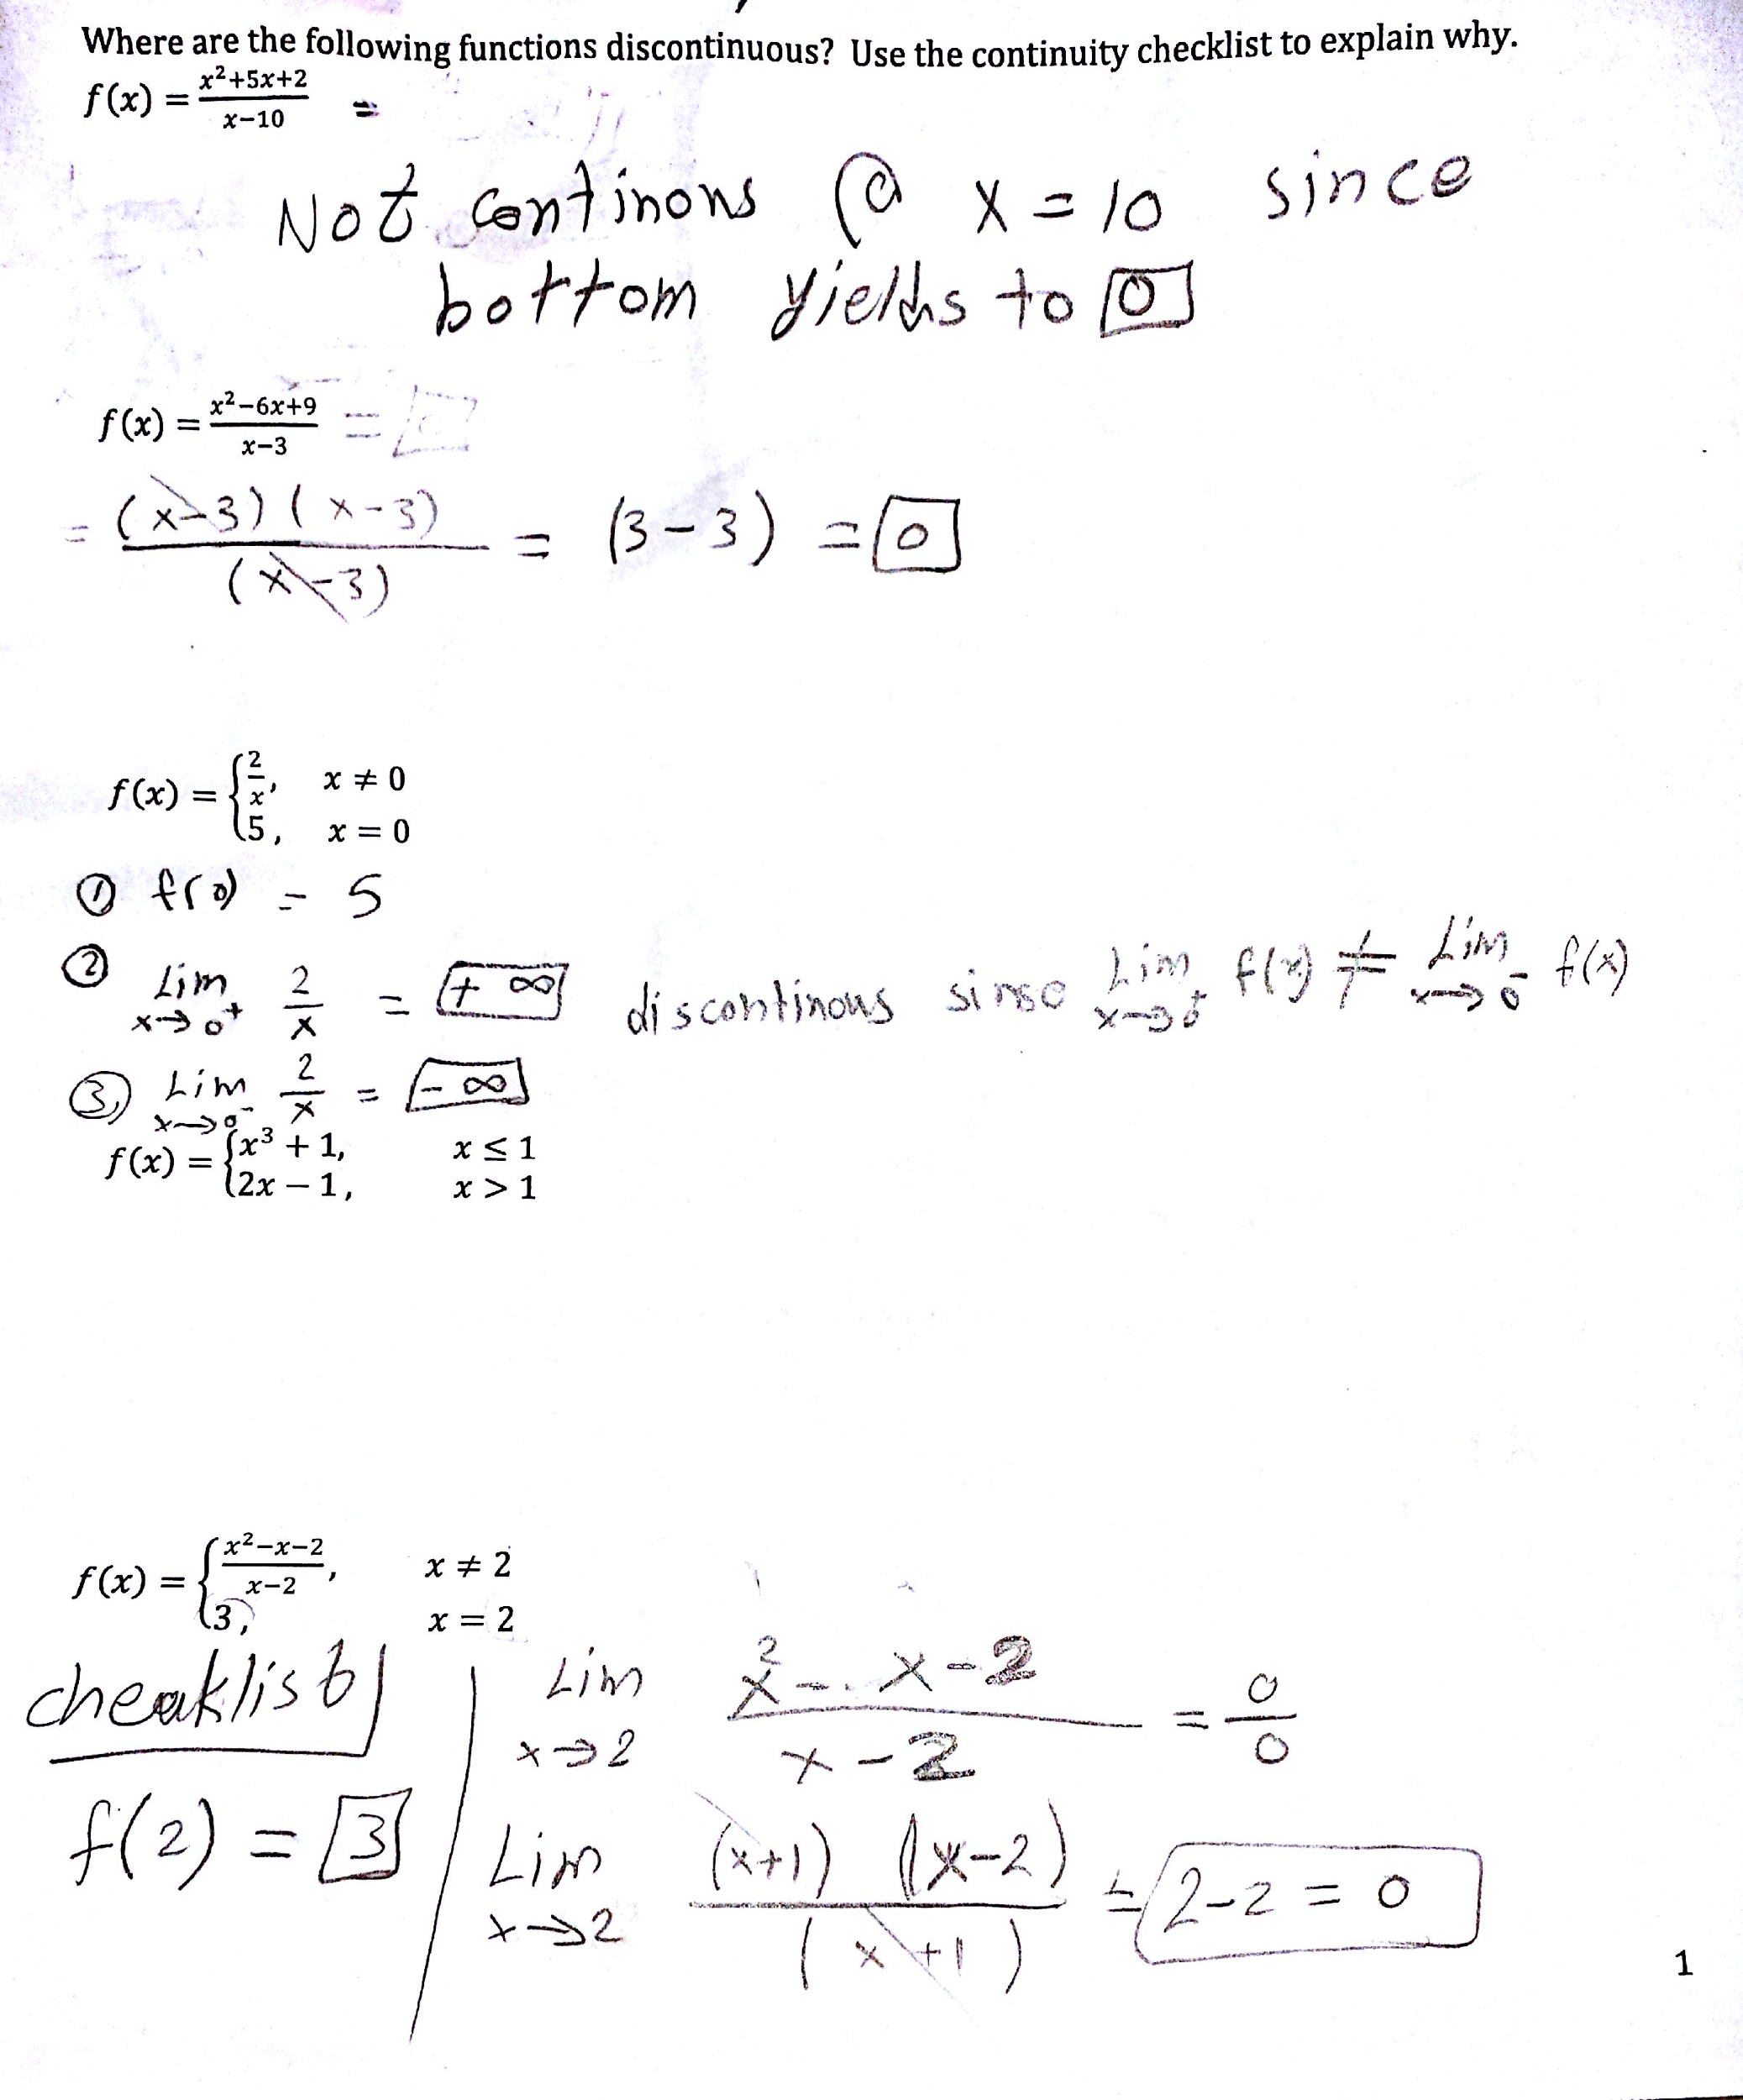 Where are the following functions discontinuous? Use the continuity checklist to explain why.
f(x) = (x²+5x+2)/(x−10) =
Not continous @ x = 10 since
bottom yields to 0
f(x) = (x²−6x+9)/(x−3) =
= (x-3)(x-3)/(x-3) = (3-3) = 0
f(x) = { 2/x, x ≠ 0
5, x = 0
① f(0) = 5
② Lim x→0⁺ 2/x = +∞ discontinous since Lim x→0⁺ f(x) ≠ Lim x→0⁻ f(x)
③ Lim x→0⁻ 2/x = -∞
f(x) = { x³ + 1, x ≤ 1
2x − 1, x > 1
f(x) = { (x²−x−2)/(x−2), x ≠ 2
3, x = 2
cheaklist
Lim x→2 (x²-x-2)/(x-2) = 0/0
f(2) = 3
Lim x→2 (x+1)(x-2)/(x+1) = 2-2 = 0
1